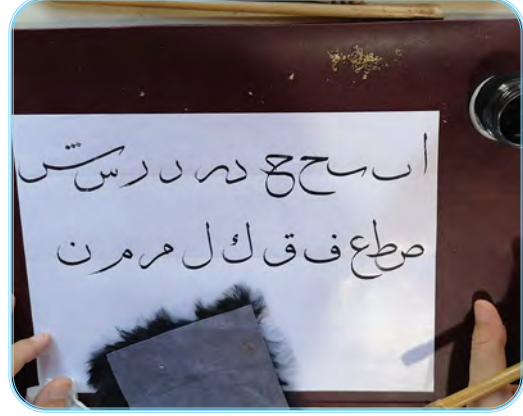 ا ح ح د ر س ش
ص ط ع ف ق ك ل م م ن